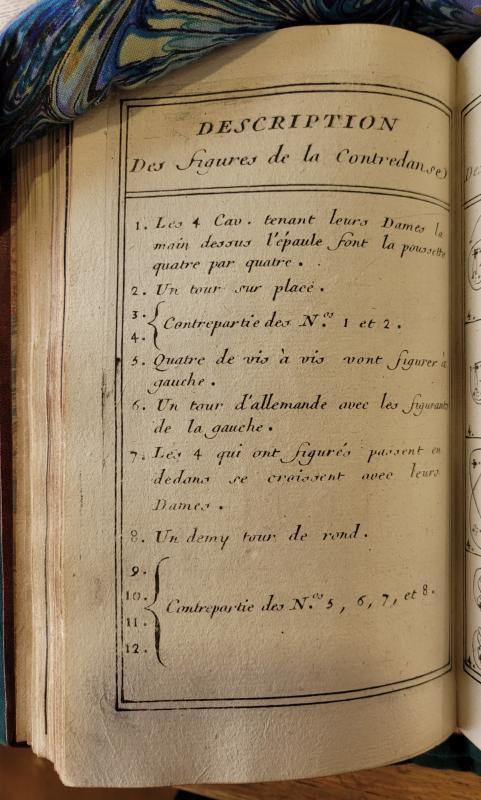 DESCRIPTION
Des figures de la Contredanse
1. Les 4 Cav. tenant leurs Dames la
main dessus l'épaule font la poussette
quatre par quatre.
2. Un tour sur place.
3.
Contrepartie des N.os 1 et 2.
4.
5. Quatre de vis à vis vont figurer à
gauche.
6. Un tour d'allemande avec les figurants
de la gauche.
7. Les 4 qui ont figurés passent en
dedans se croissent avec leurs
Dames.
8. Un demy tour de rond.
9.
10.
Contrepartie des N.os 5, 6, 7, et 8.
11.
12.